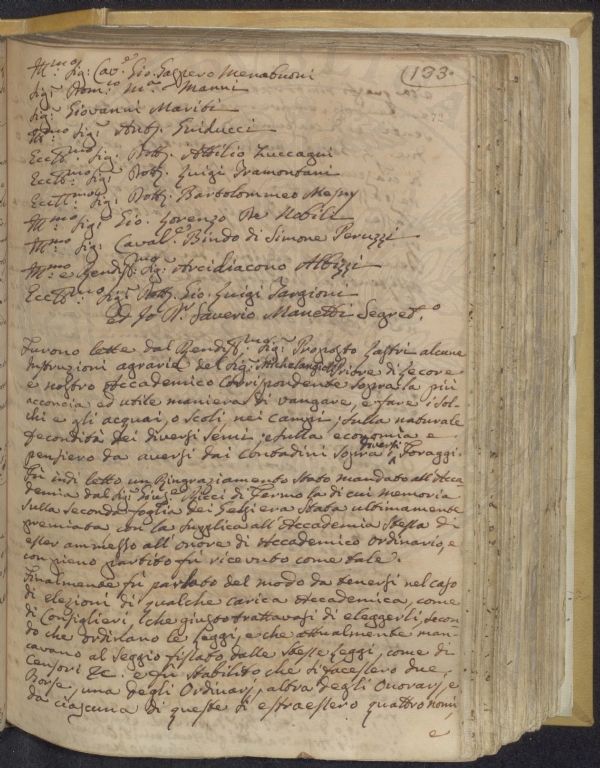 (133.
Ill.mo Sig.r Cav.e Gio. Gaspero Menabuoni
Sig.r Dom.co M.a Manni
Sig.r Giovanni Mariti
Ill.mo Sig.r Ant.o Guiducci
Ecc.mo Sig.r Dott. Attilio Zuccagni
Ecc.mo Sig.r Dott. Luigi Tramontani
Ecc.mo Sig.r Dott. Bartolommeo Mesny
Ill.mo Sig.r Gio. Lorenzo De Nobili
Ill.mo Sig.r Caval.e Bindo di Simone Peruzzi
Ill.mo e Rendiss.mo Sig.r Arcidiacono Albizzi
Ecc.mo Sig.r Dott. Gio. Luigi Targioni
Ed Io D.r Saverio Manetti Segret.o
Furono lette dal Rendiss.mo Sig.r Proposto Lastri alcune
Instruzioni agrarie del Sig.r Michelangiolo Priore di Cecore
e nostro Accademico Corrispondente sopra la più
acconcia ed utile maniera di vangare, e fare i sol-
chi e gli acquai, o scoli nei campi; sulla naturale
fecondità dei diversi semi; e sulla economia e
pensiero da aversi dai Contadini sopra i diversi Foraggi.
Fù indi letto un Ringraziamento stato mandato all'Acca
demia dal Sig.r Giu.e Ricci di Fermo la di cui memoria
sulla seconda foglia dei Gelsi era stata ultimamente
premiata con la supplica all'Accademia stessa di
esser ammesso all'onore di Accademico ordinario, e
con pieno partito fù ricevuto come tale.
Finalmente fù parlato del modo da tenersi nel caso
di elezioni di qualche carica Accademica, come
di Consiglieri, che giusto trattavasi di eleggerli, secon
do che ordinano le leggi, e che attualmente man-
cavano al seggio fissato dalle stesse leggi, come di
Censori &c. e fù stabilito che si facessero due
Borse, una degli Ordinarj, altra degli Onorarj, e
da ciascuna di queste si estraessero quattro nomi,
e